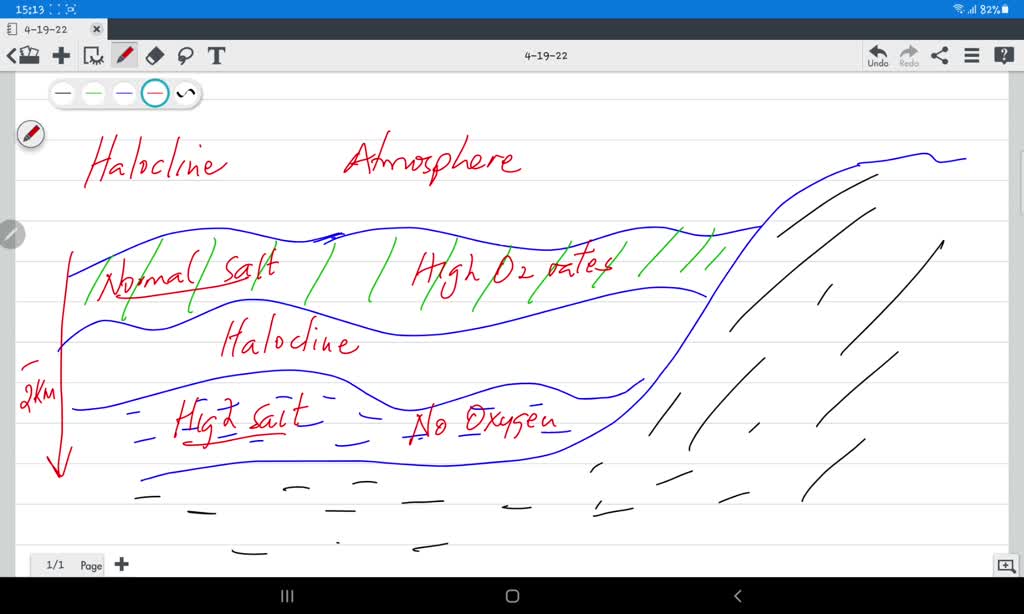 15:13 82%
4-19-22
4-19-22
Undo Redo
T
Halocline Atmosphere
Normal salt High O2 rates
Halocline
2KM
High salt No Oxygen
1/1 Page